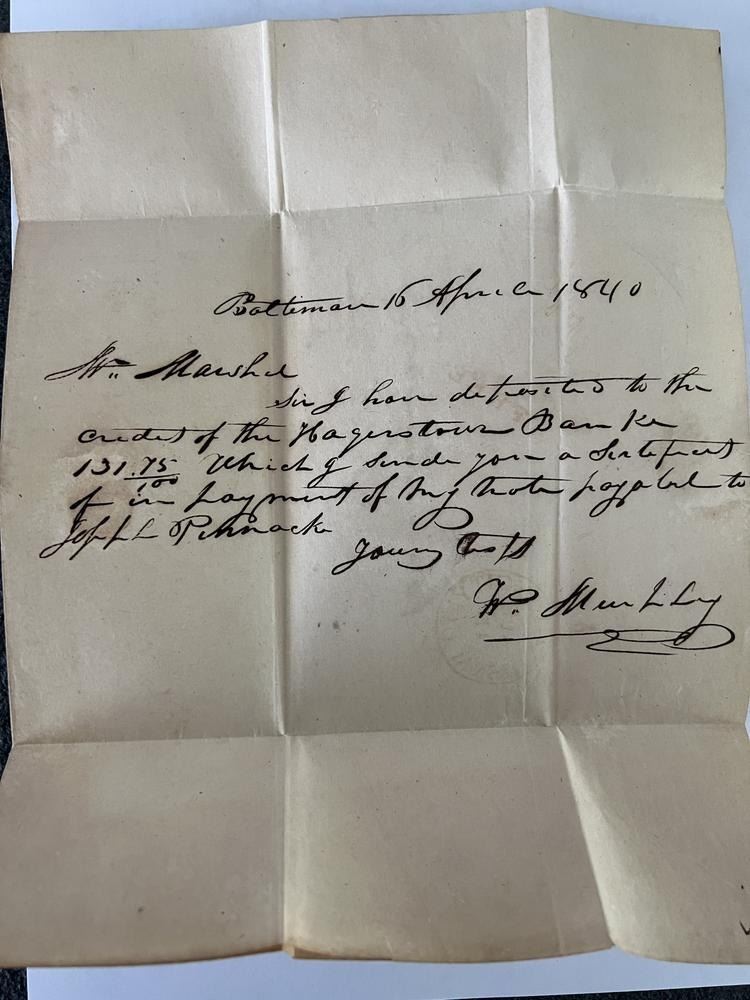 Baltimore 16 April 1840
Wm Marshel
Sir I have deposited to the
credit of the Hagerstown Bank
131.75/100 Which I sende you a Sertificet
of in payment of my note payabel to
Pennack
yours
Wm Murphy